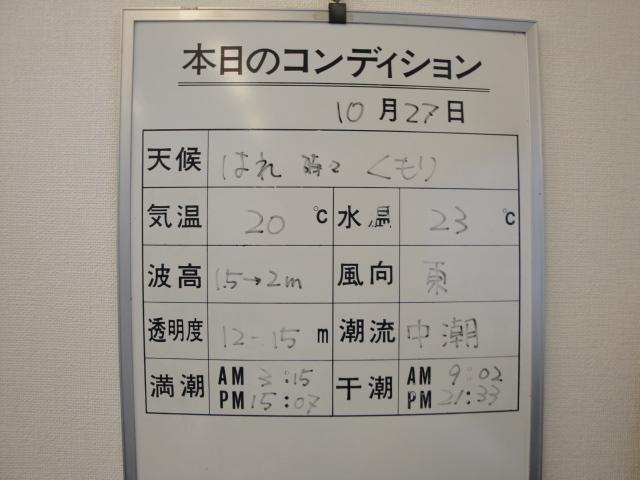 本日のコンディション
10月27日
天候 はれ 時々 くもり
気温 20 ℃ 水温 23 ℃
波高 1.5→2m 風向 東
透明度 12-15 m 潮流 中潮
満潮 AM 3:15 干潮 AM 9:02
PM 15:07 PM 21:33